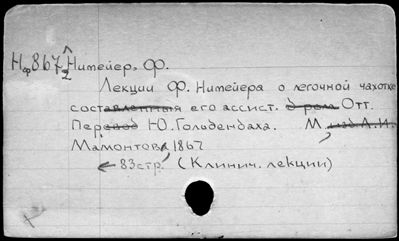 Нф867 Нимейер, Ф.
2
Лекции Ф. Нимейера о легочной чахотке
составленныя его ассист. Отт.
Перевод Ю. Гольдендаха. М. изд А.И.
Мамонтова, 1867
← 83стр. (Клинич. лекции)